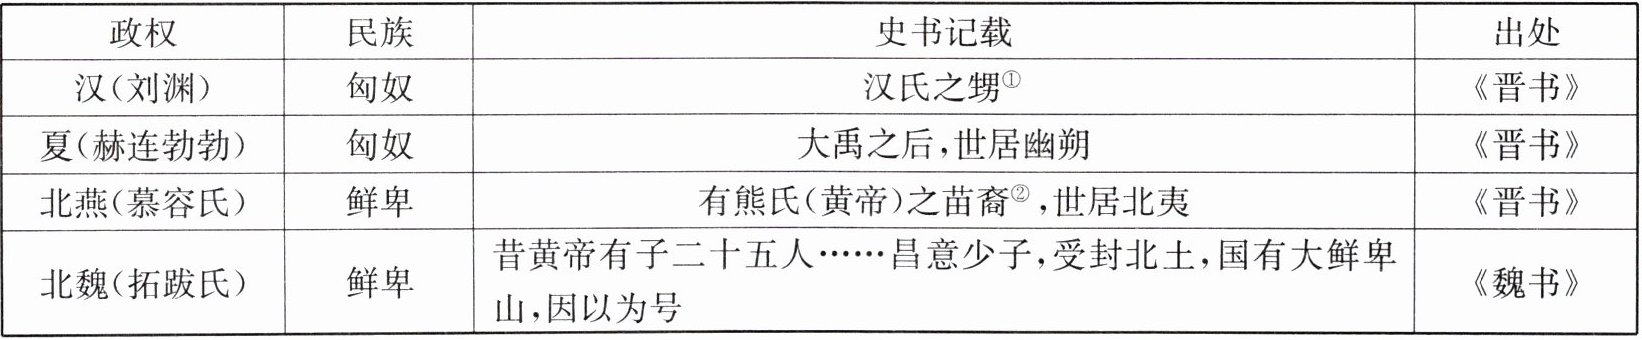 政权 民族 史书记载 出处
汉(刘渊) 匈奴 汉氏之甥① 《晋书》
夏(赫连勃勃) 匈奴 大禹之后,世居幽朔 《晋书》
北燕(慕容氏) 鲜卑 有熊氏(黄帝)之苗裔②,世居北夷 《晋书》
北魏(拓跋氏) 鲜卑 昔黄帝有子二十五人……昌意少子,受封北土,国有大鲜卑
山,因以为号 《魏书》